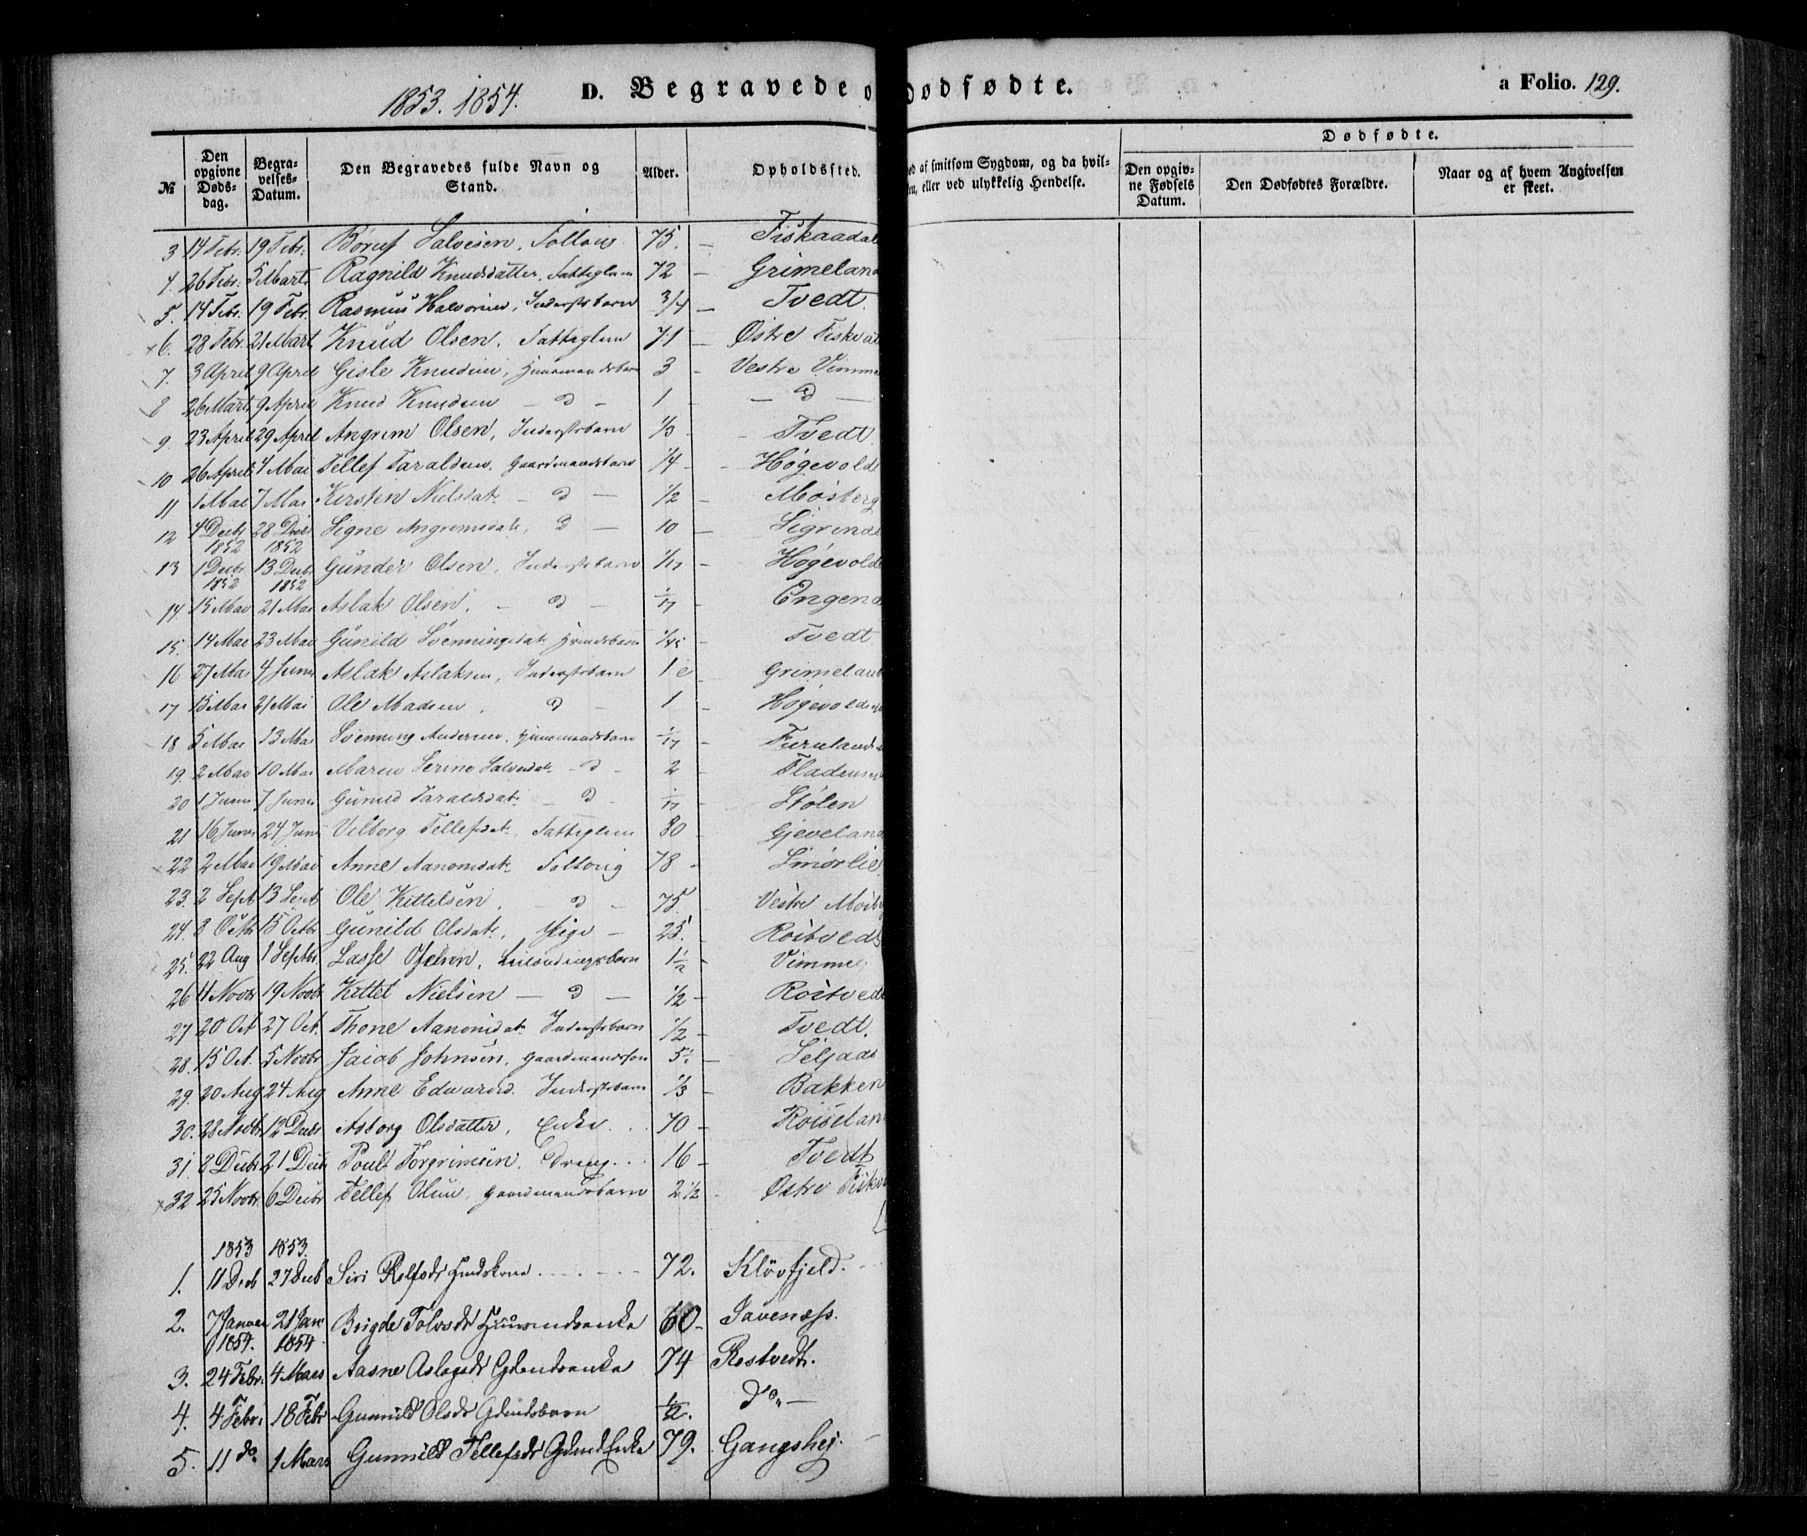 1853. 1854.
D. Begravede o
Dødfødte.
a Folio. 129.
№
Den opgivne Døds-dag.
Begra-velses-Datum.
Den Begravedes fulde Navn og Stand.
Alder.
Opholdssted.
ød af smitsom Sygdom, og da hvil-
en, eller ved ulykkelig Hendelse.
Dødfødte.
Den opgiv-ne Fødsels Datum.
Den Dødfødtes Forældre.
Naar og af hvem Angivelsen er skeet.
3 14 Febr. 19 Febr. Børuf Salvesen, 75. – Fiskaadal
4. 26 Febr. 5 Marts Ragnild Knudsdatter, Fattiglem 72 – Grimeland
5 14 Febr. 19 Febr. Rasmus Halvorsen, Inderstbarn 3/4 – Tvedt
6. 28 Febr. 21 Mart Knud Olsen, Fattiglem 71 – Østre Fiske
7. 3 April 9 April Gisle Knudsen, Huusmandsbarn 3 – Vestre Vimme
8 26 Marts 9 April Knud Knudsen – d – 1 – d –
9. 23 April 29 April Angrim Olsen, Inderstbarn 1/3 – Tvedt.
10 26 April 4 Mai Tellef Taraldsen, Gaardmandsbarn 1/4 – Høgevolde
11 1 Mai 7 Mai Kirsten Nielsdat – d – 1/2 – Møsberg
12 4 Decb 1852 28 Decb 1852 Signe Angrimsdat, d – 10 – Sigrinds
13 1 Decbr 1852 13 Decbr 1852 Gunder Olsen, Inderstbarn – Høgevolde
14 15 Mai 21 Mai Aslak Olsen, – d – 1/17 – Engene
15. 14 Mai 23 Mai Gunild Svenningsdat 1/45 – Tvedt
16 27 Mai 4 Juni Aslak Aslaksen, Inderstbarn 1 – Grimeland
17 15 Mai 21 Mai Ole Madsen. d – 1 – Høgevolden
18 5 Mai 13 Mai Svenning Andersen, Huusmandsbarn 1/17 – Furuland
19. 2 Mai 10 Mai Maren Serine Salvesdat. – d – 2 – Fladen
20 1 Juni 7 Juni Gunild Taraldsdat – d – – Stølen
21 16 Juni 24 Juni Vilborg Tellefsdat, Fattiglem 80 – Gjeveland
22 2 Mai 19 Mai Anne Aanonsdat 78 – Smørlie
23. 2 Sept 13 Sept Ole Kittelsen, – d – 75. Vestre
24. 8 Octbr 15 Octbr Gunild Olsdat, Pige – 25. – Roitved
25. 22 Aug 1 Septbr Lasse Olsen, 1 1/2 – Vimme
26 11 Novbr 19 Novbr Kittel Nielsen – d – 1/2 – Roitvedt
27 20 Oct 27 Oct. Thone Aanonsdat Inderstbarn 1/2 – Tvedt.
28. 15 Oct. 5 Novbr Jacob Johnsen, Gaardmandssøn 5 1/2 – Seljaas
29. 20 Aug 24 Aug Anne Edwardsd. Inderstbarn 1/3 – Bakken
30. 28 Novbr 12 Decbr Asborg Olsdatter, Enke 70 – Roiselan
31 8 Decbr 21 Decb Poul Torgrimsen, Dreng 16 – Tvedt
32 25 Novbr. 6 Decbr Tellef Olsen, Gaardmandsbarn 2 1/2 – Østre Fiske
1853 1853.
1. 11 Decb 27 Decb Siri Rolfsdr 72. Kløvfjeld.
2. 7 Januar 1854. 21 Jan 1854 Brigde Tolvsdr Huusmdsenke 60 – Javenæss.
3. 24 Febr. 4 Mars Aasne Aslagsdr Gdmdsenke 74 Rostvedt.
4. 4 Febr. 18 Febr Gunnild Olsdr Gdmdsbarn 1/2. do –
5. 11 do 1 Mars Gunnild Tellefsdr Gdmd Enke 79. Gangshej.